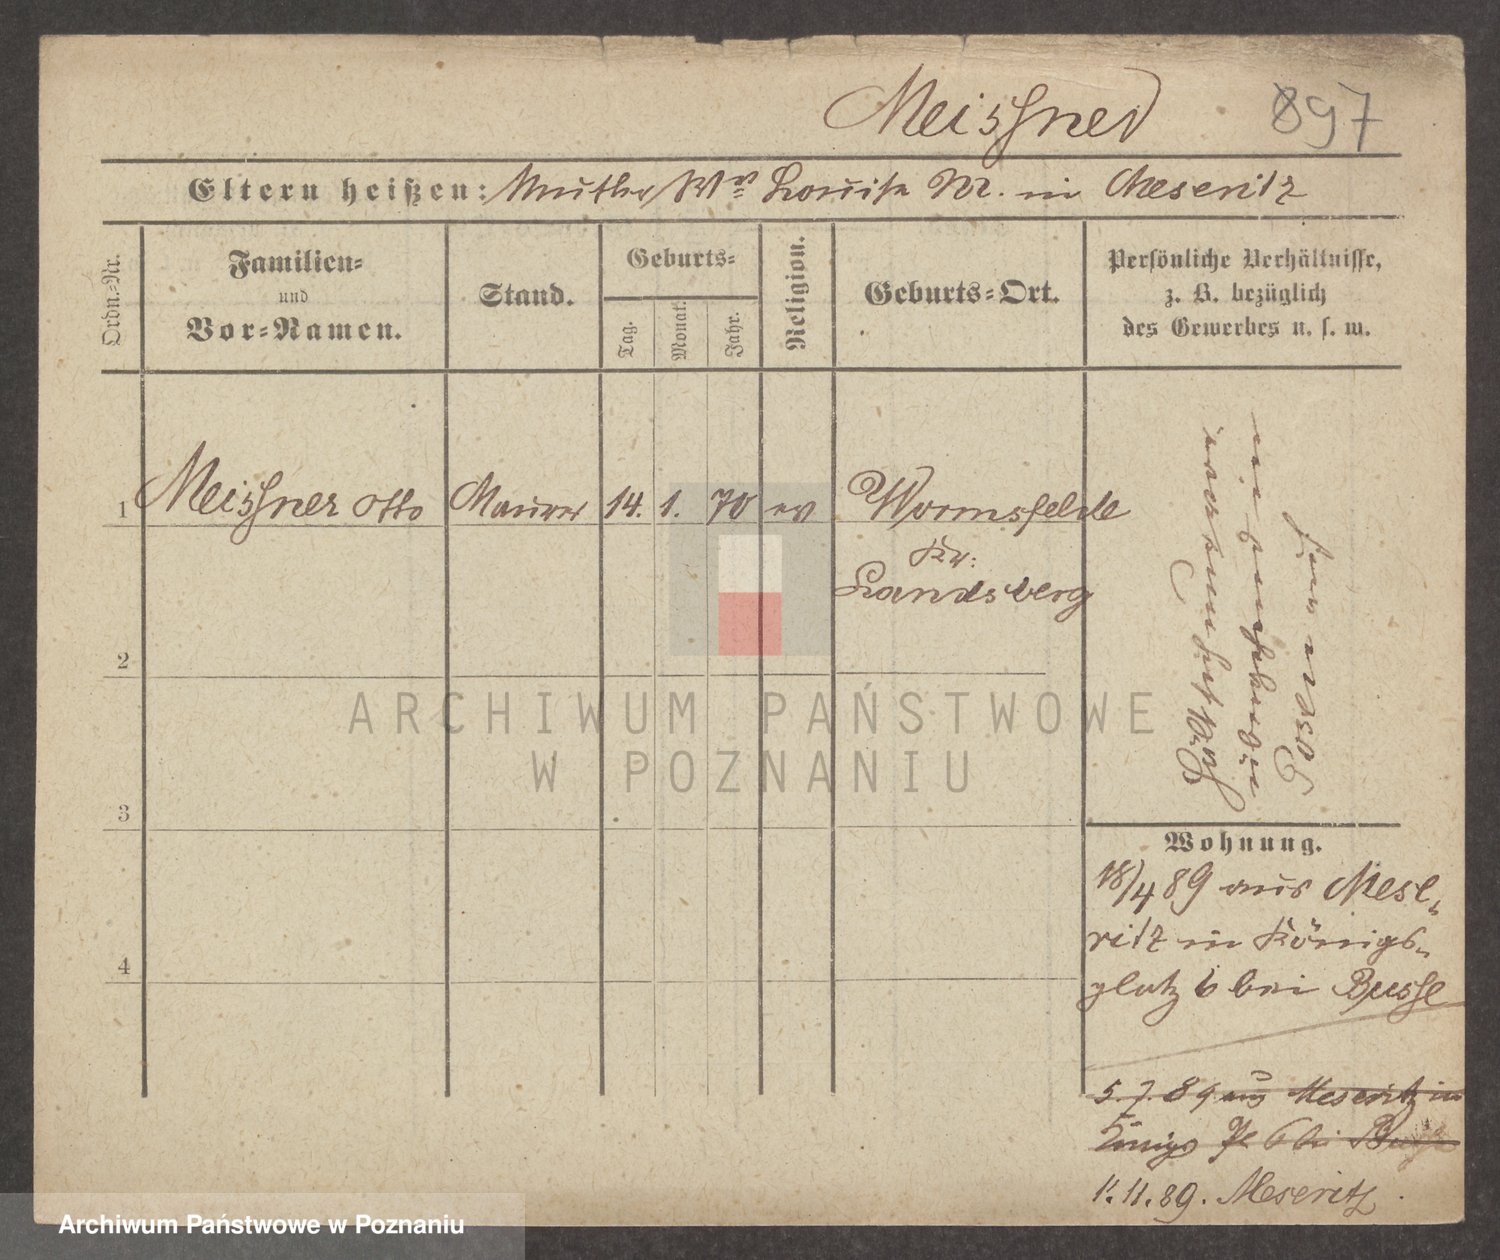 Meissner 897
Eltern heißen: Mutter Ww Louise M. in Meseritz
Ordn.-Nr.
Familien-
und
Vor-Namen.
Stand.
Geburts-
Tag.
Monat.
Jahr.
Religion.
Geburts-Ort.
Persönliche Verhältnisse,
z. B. bezüglich
des Gewerbes u. s. w.
1 Meissner Otto Maurer 14. 1. 70 ev Wormsfelde
Kr:
Landsberg
2
3
4
Wohnung.
18/4 89 aus Mese-
ritz in Königs-
platz 6 bei Busse
5.7.89 aus Meseritz in
Königs Pl 6 bei Busse
1.11.89. Meseritz.
ARCHIWUM PAŃSTWOWE
W POZNANIU
Archiwum Państwowe w Poznaniu